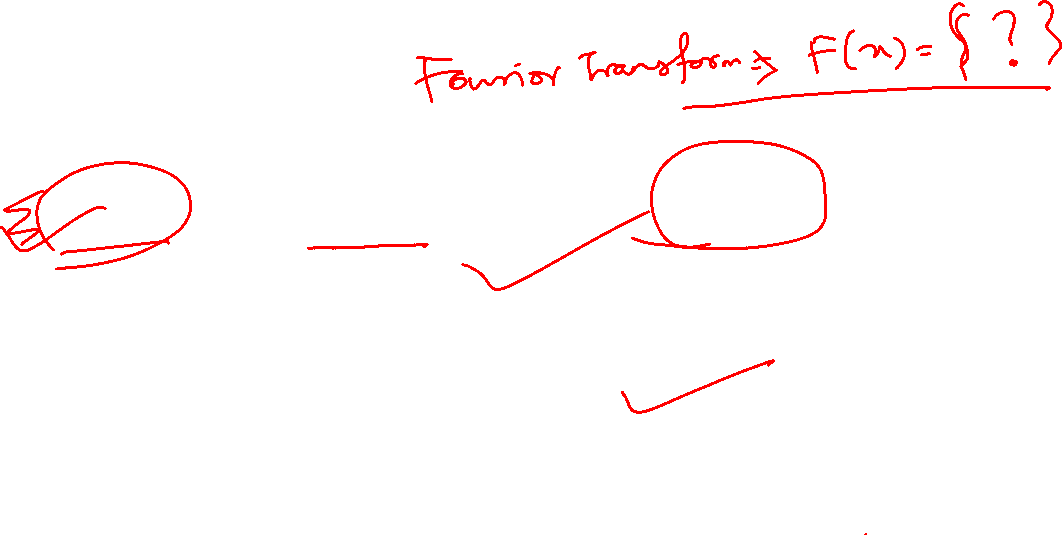 Fourior Transform ⇒ F(x) = { ? }